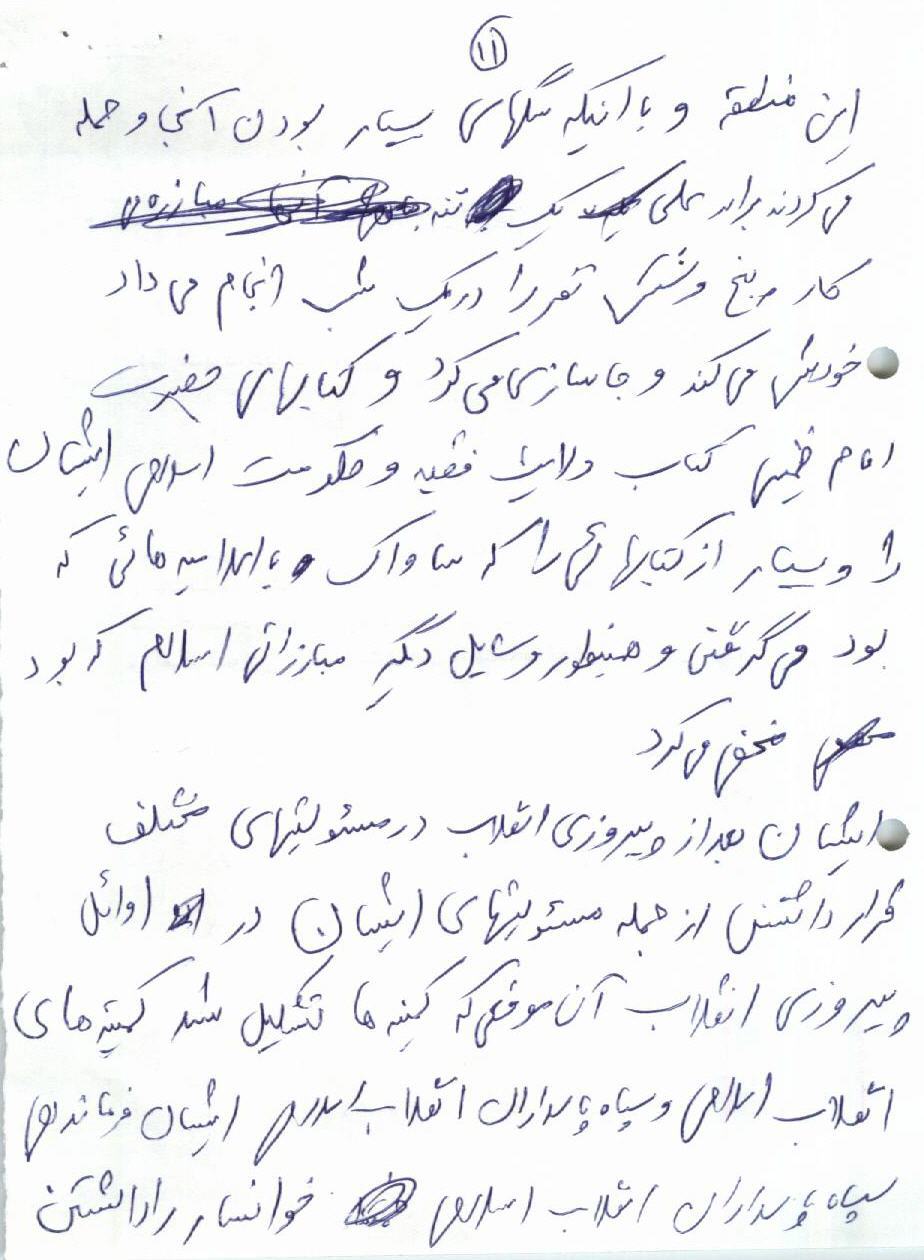 ۱۱
این منطقه و با اینکه سگهای بسیار بودن آنجا و حمله
می کردند برادر علی یک تنه
کار پنج و شش نفر را در یک شب انجام می داد
خودش می کند و جاسازی می کرد و کتابهای حضرت
امام خمینی کتاب ولایت فقیه و حکومت اسلامی ایشان
را و بسیار از کتابهائی را که ساواک با اعلامیه هائی که
بود می گرفتن و همینطور وسایل دیگر مبارزاتی اسلام که بود
مخفی می کرد
ایشان بعد از پیروزی انقلاب در مسئولیتهای مختلف
قرار داشتن از جمله مسئولیتهای ایشان در اوائل
پیروزی انقلاب آن موقعی که کمیته ها تشکیل شد کمیته های
انقلاب اسلامی و سپاه پاسداران انقلاب اسلامی ایشان فرماندهی
سپاه پاسداران انقلاب اسلامی خوانسار را داشتن